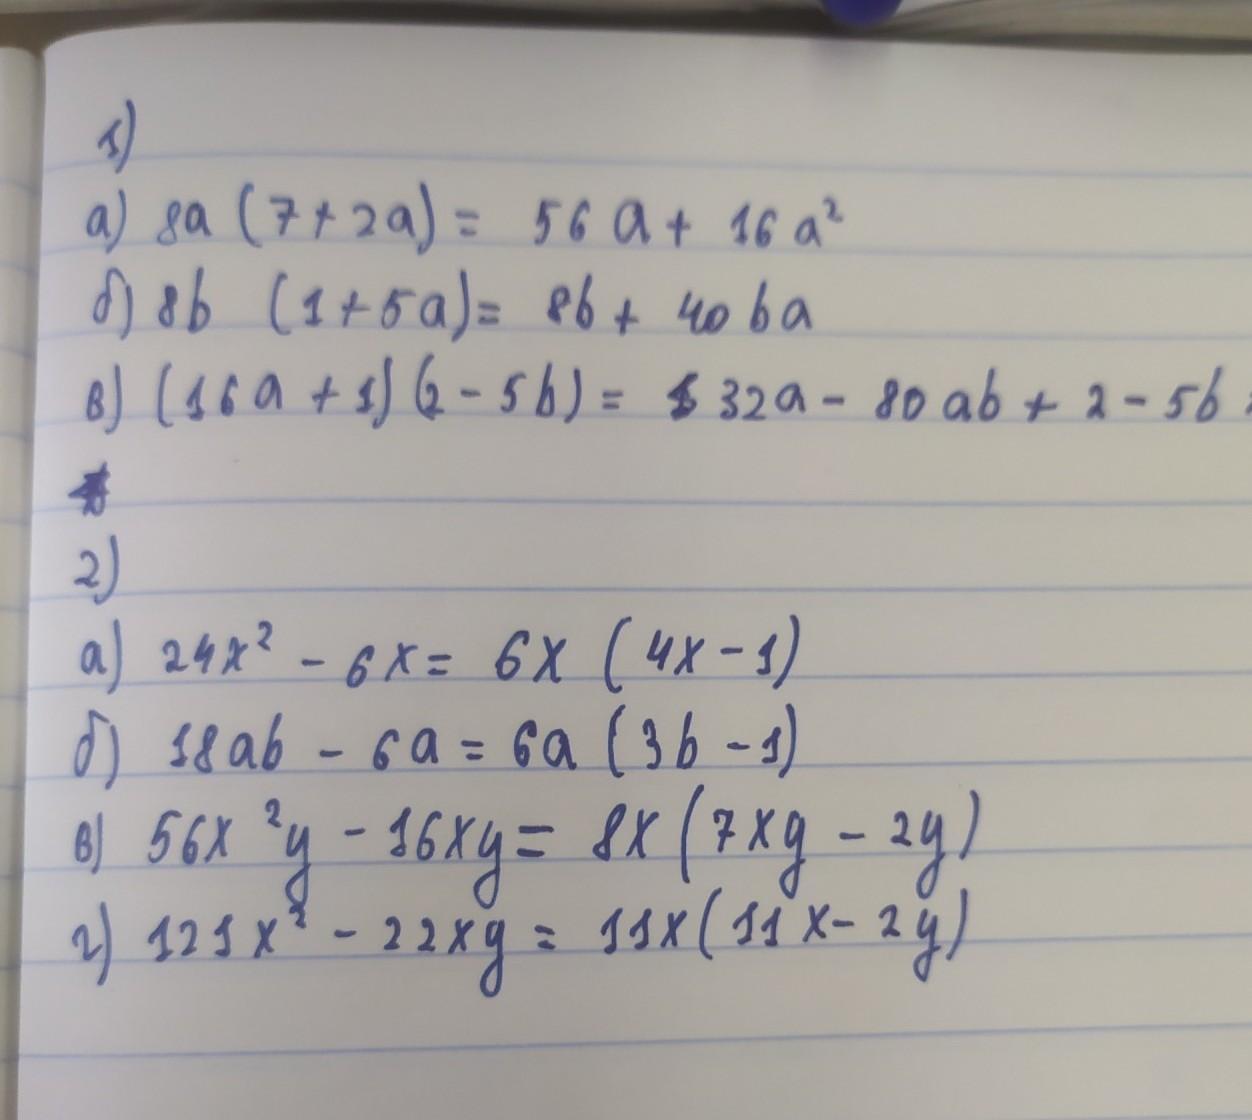 1)
а) 8a (7+2a) = 56a + 16a²
б) 8b (1+5a) = 8b + 40ba
в) (16a + 1)(2 - 5b) = 32a - 80ab + 2 - 5b
2)
а) 24x² - 6x = 6x (4x - 1)
б) 18ab - 6a = 6a (3b - 1)
в) 56x²y - 16xy = 8x (7xy - 2y)
г) 121x² - 22xy = 11x (11x - 2y)